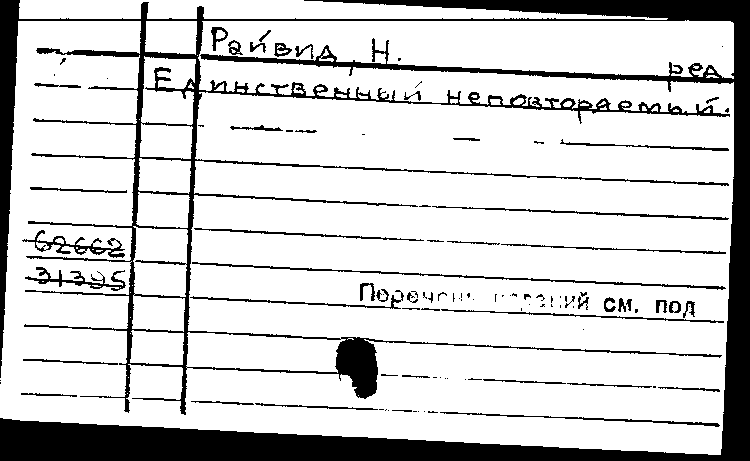 Райвид, Н. ред.
Единственный неповторяемый.
62662
31395
Перечень изданий см. под